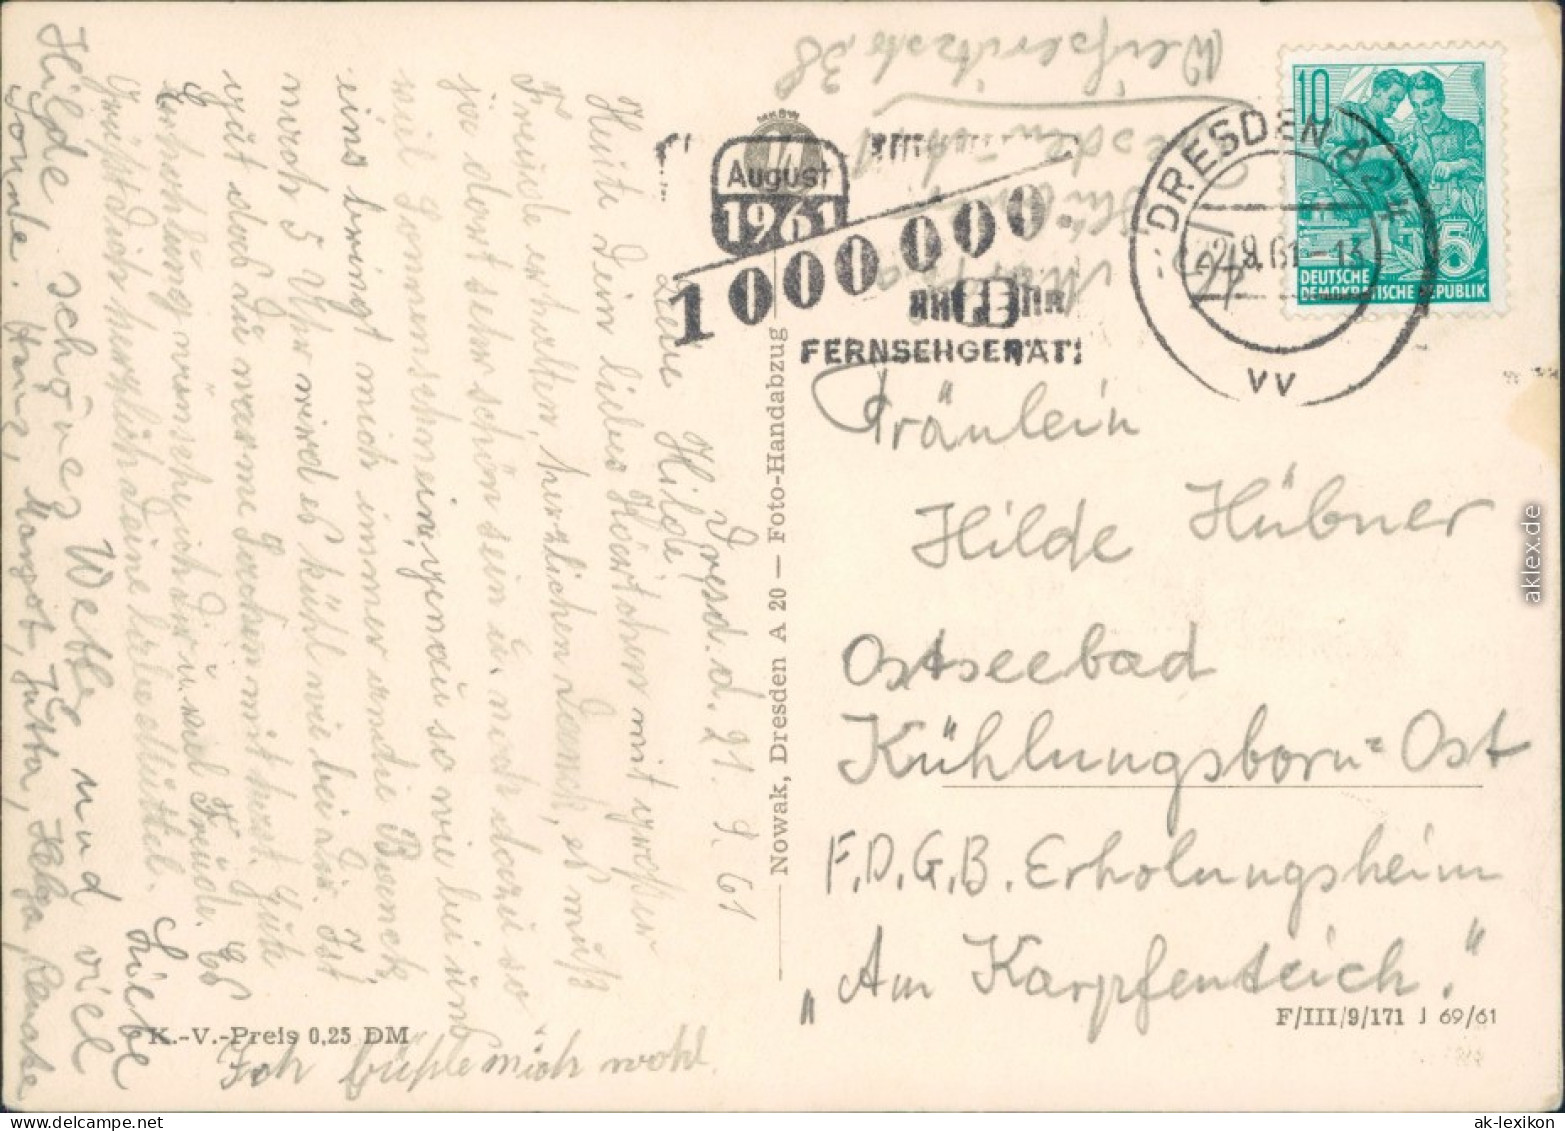 Dresd. d. 21. 9. 61
Liebe Hilde!
Heute Dein liebes Kärtchen mit großer
Freude erhalten, herzlichen Dank, es muß
ja dort sehr schön sein u. noch dazu so
viel Sonnenschein, genau so wie bei uns
eins bringt mich immer an die
noch 5 Uhr wird es kühl wie bei uns. Ist
gut das Du warme Sachen mit hast. Gute
Erholung wünsche ich Dir u. viel Freude. Es
grüßt Dich herzlich Deine liebe Mutter.
Liebe
Hilde schönes Wetter und viel
Sonne. Margot, Jutta, Helga, Renate
Ich fühle mich wohl.
K.-V.-Preis 0,25 DM
Nowak, Dresden A 20 — Foto-Handabzug
August
1961
1000000
FERNSEHGERÄT
DRESDEN A 24
22.9.61-13
VV
10
5
DEUTSCHE
DEMOKRATISCHE REPUBLIK
Fräulein
Hilde Hübner
Ostseebad
Kühlungsborn-Ost
F.D.G.B. Erholungsheim
„Am Karpfenteich."
F/III/9/171 J 69/61
Dresden
38
aklex.de
ak-lexikon